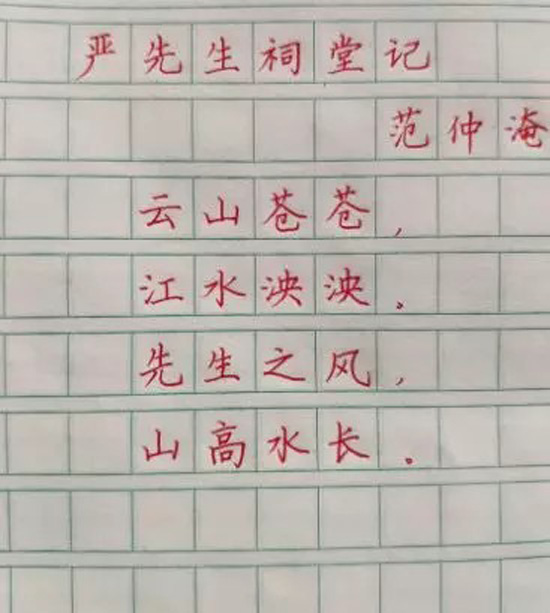 严先生祠堂记
范仲淹
云山苍苍，
江水泱泱。
先生之风，
山高水长。